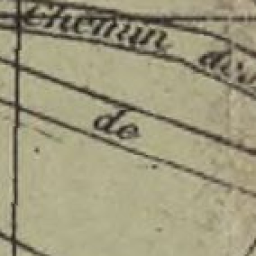 Chemin
de